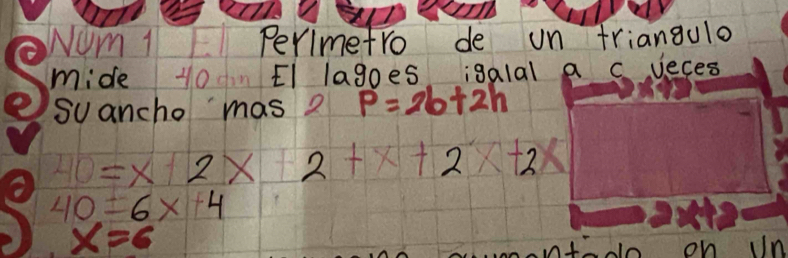 Num 1 El Perimetro de un triangulo
mide 40 cm El lagoes igalal a c veces
su ancho mas 2 P=2b+2h
2x+2
40=x+2x+2+x+2x+2x
x
40=6x+4
2x+2
x=6
en un